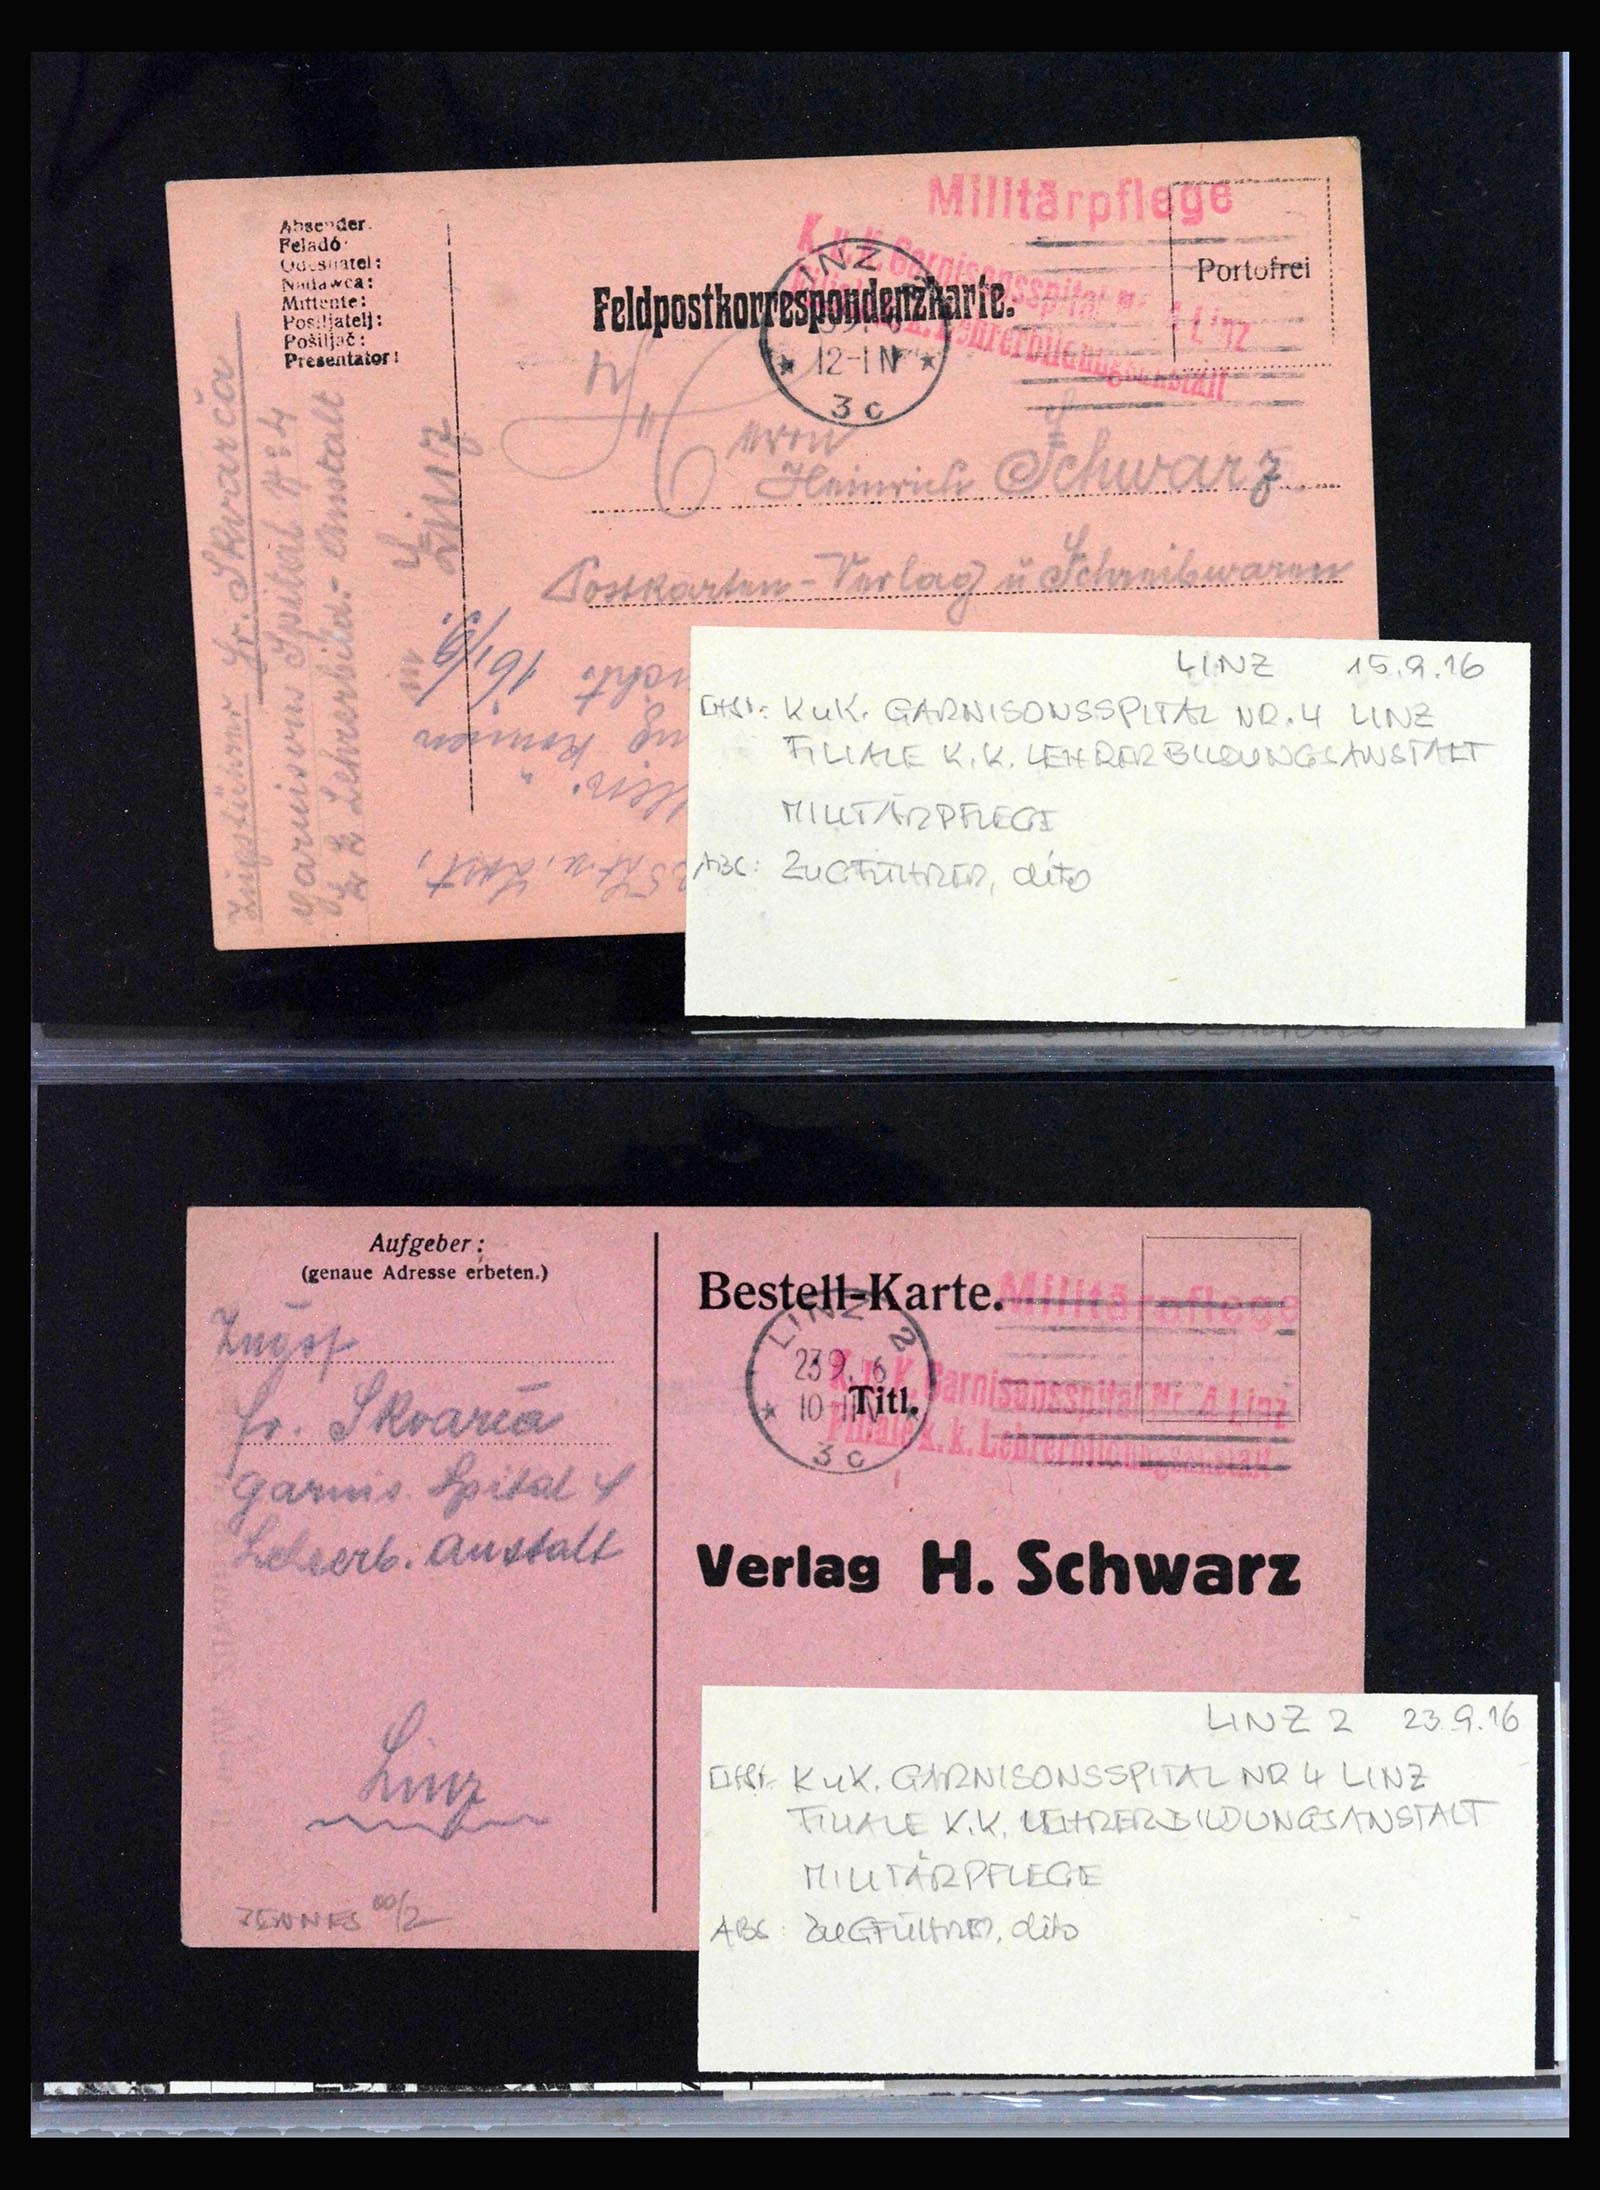 Absender:
Feladó:
Odesílatel:
Nadawca:
Mittente:
Pošiljatelj:
Pošiljač:
Presentator:
Zugsführer Fr. Skvarča
Garnisons Spital N: 4
k k Lehrerbild.- Anstalt
in Linz
Militärpflege
K. u. k. Garnisonsspital Nr. 4 Linz
Filiale k. k. Lehrerbildungsanstalt
Portofrei
Feldpostkorrespondenzkarte.
LINZ
12-1N
3c
Herrn
Heinrich Schwarz
Postkarten-Verlag u Schreibwaren
16/9.
LINZ 15.9.16
KuK. GARNISONSSPITAL NR. 4 LINZ
FILIALE K.K. LEHRERBILDUNGSANSTALT
MILITÄRPFLEGE
ABS: ZUGFÜHRER, dito
Aufgeber:
(genaue Adresse erbeten.)
Zugsf
Fr. Skvarča
Garnis. Spital 4
Lehrerb. Anstalt
Linz
JENNES 00/2
Bestell-Karte.
Militärpflege
LINZ 2
23 9. 16
10-11N
3c
K. u. k. Garnisonsspital Nr. 4 Linz
Filiale k. k. Lehrerbildungsanstalt
Titl.
Verlag H. Schwarz
LINZ 2 23.9.16
KuK. GARNISONSSPITAL NR 4 LINZ
FILIALE K.K. LEHRERBILDUNGSANSTALT
MILITÄRPFLEGE
ABS: ZUGFÜHRER, dito